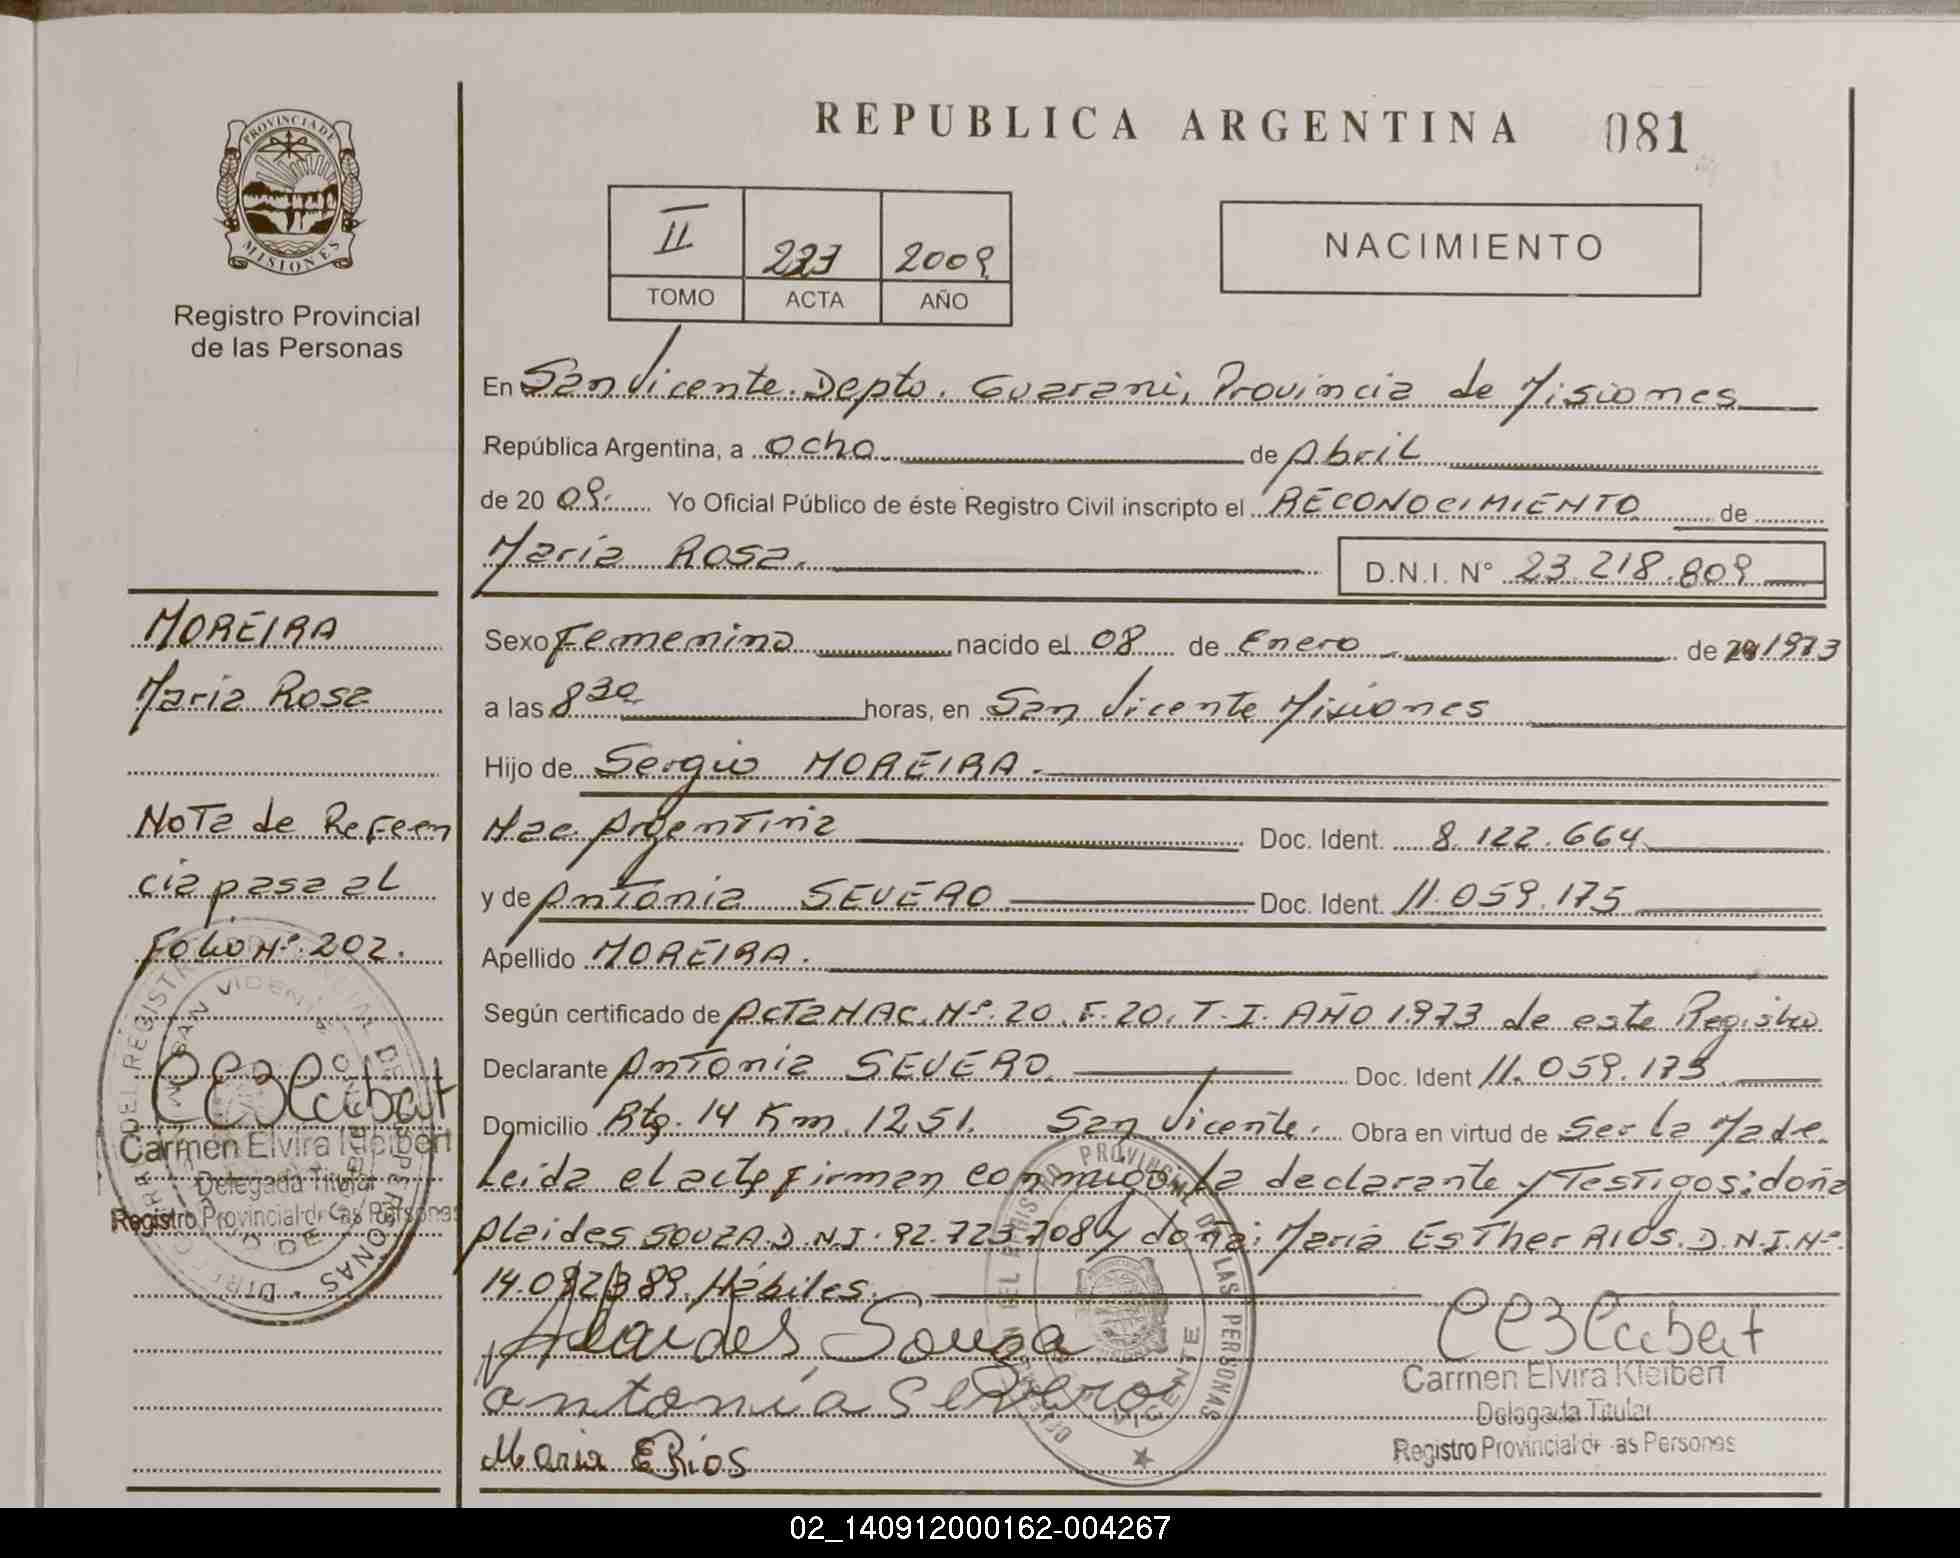 REPUBLICA ARGENTINA 081
PROVINCIA DE
MISIONES
Registro Provincial
de las Personas
II 2009
TOMO ACTA AÑO
NACIMIENTO
En San Vicente. Depto. Guarani, Provincia de Misiones
República Argentina, a ocho de Abril
de 20 09. Yo Oficial Público de éste Registro Civil inscripto el RECONOCIMIENTO de
María Rosa. D.N.I. N° 23.218.809
MOREIRA
María Rosa
Nota de Refeen
cia pasa al
Folio Nº 202.
Sexo Femenino nacido el 08 de Enero de 1973
a las 8 30 horas, en San Vicente Misiones
Hijo de Sergio MOREIRA.
Nac. Argentina Doc. Ident. 8.122.664
y de Antonia SEVERO Doc. Ident. 11.059.175
Apellido MOREIRA.
Según certificado de Acta NAC. Nº 20. F. 20. T. I. AÑO 1973 de este Registro
Declarante Antonia SEVERO Doc. Ident 11.059.175
Domicilio Rta. 14 Km. 1251. San Vicente. Obra en virtud de Ser la Madre
Leida el acta firman conmigo la declarante y Testigos: doña
Plaides SOUZA. D.N.I. 92.723.708 y doña: María Esther RIOS. D.N.I. Nº
14.0 389. Hábiles.
Souza
antonia severo
Maria E Rios
Carmen Elvira Kleibert
Delegada Titular
Registro Provincial de las Personas
Carmen Elvira Kleibert
Delegada Titular
Registro Provincial de las Personas
02_140912000162-004267